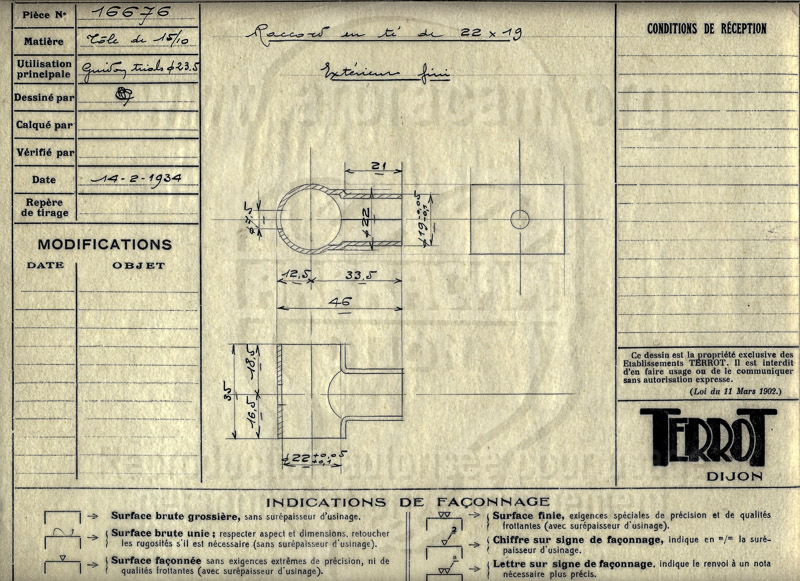 Pièce N° 16676
Matière Tôle de 15/10
Utilisation principale Guidon trials ϕ23.5
Dessiné par
Calqué par
Vérifié par
Date 14-2-1934
Repère de tirage
MODIFICATIONS
DATE OBJET
Raccord en té de 22 x 19
Extérieur fini
21
ϕ22
12,5 33,5
46
35
16,5 18,5
ϕ22 +0,05 +0,1
CONDITIONS DE RÉCEPTION
Ce dessin est la propriété exclusive des
Etablissements TERROT. Il est interdit
d'en faire usage ou de le communiquer
sans autorisation expresse.
(Loi du 11 Mars 1902.)
TERROT
DIJON
INDICATIONS DE FAÇONNAGE
Surface brute grossière, sans surépaisseur d'usinage.
Surface brute unie ; respecter aspect et dimensions, retoucher
les rugosités s'il est nécessaire (sans surépaisseur d'usinage).
Surface façonnée sans exigences extrêmes de précision, ni de
qualités frottantes (avec surépaisseur d'usinage).
Surface finie, exigences spéciales de précision et de qualités
frottantes (avec surépaisseur d'usinage).
Chiffre sur signe de façonnage, indique en m/m la suré-
paisseur d'usinage.
Lettre sur signe de façonnage, indique le renvoi à un nota
nécessaire plus précis.